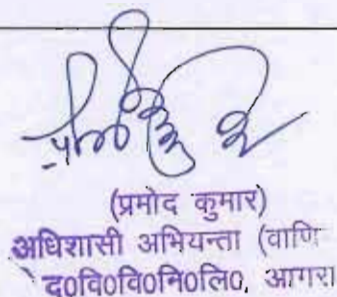 (प्रमोद कुमार)
अधिशासी अभियन्ता (वाणि
द०वि०वि०नि०लि०, आगरा